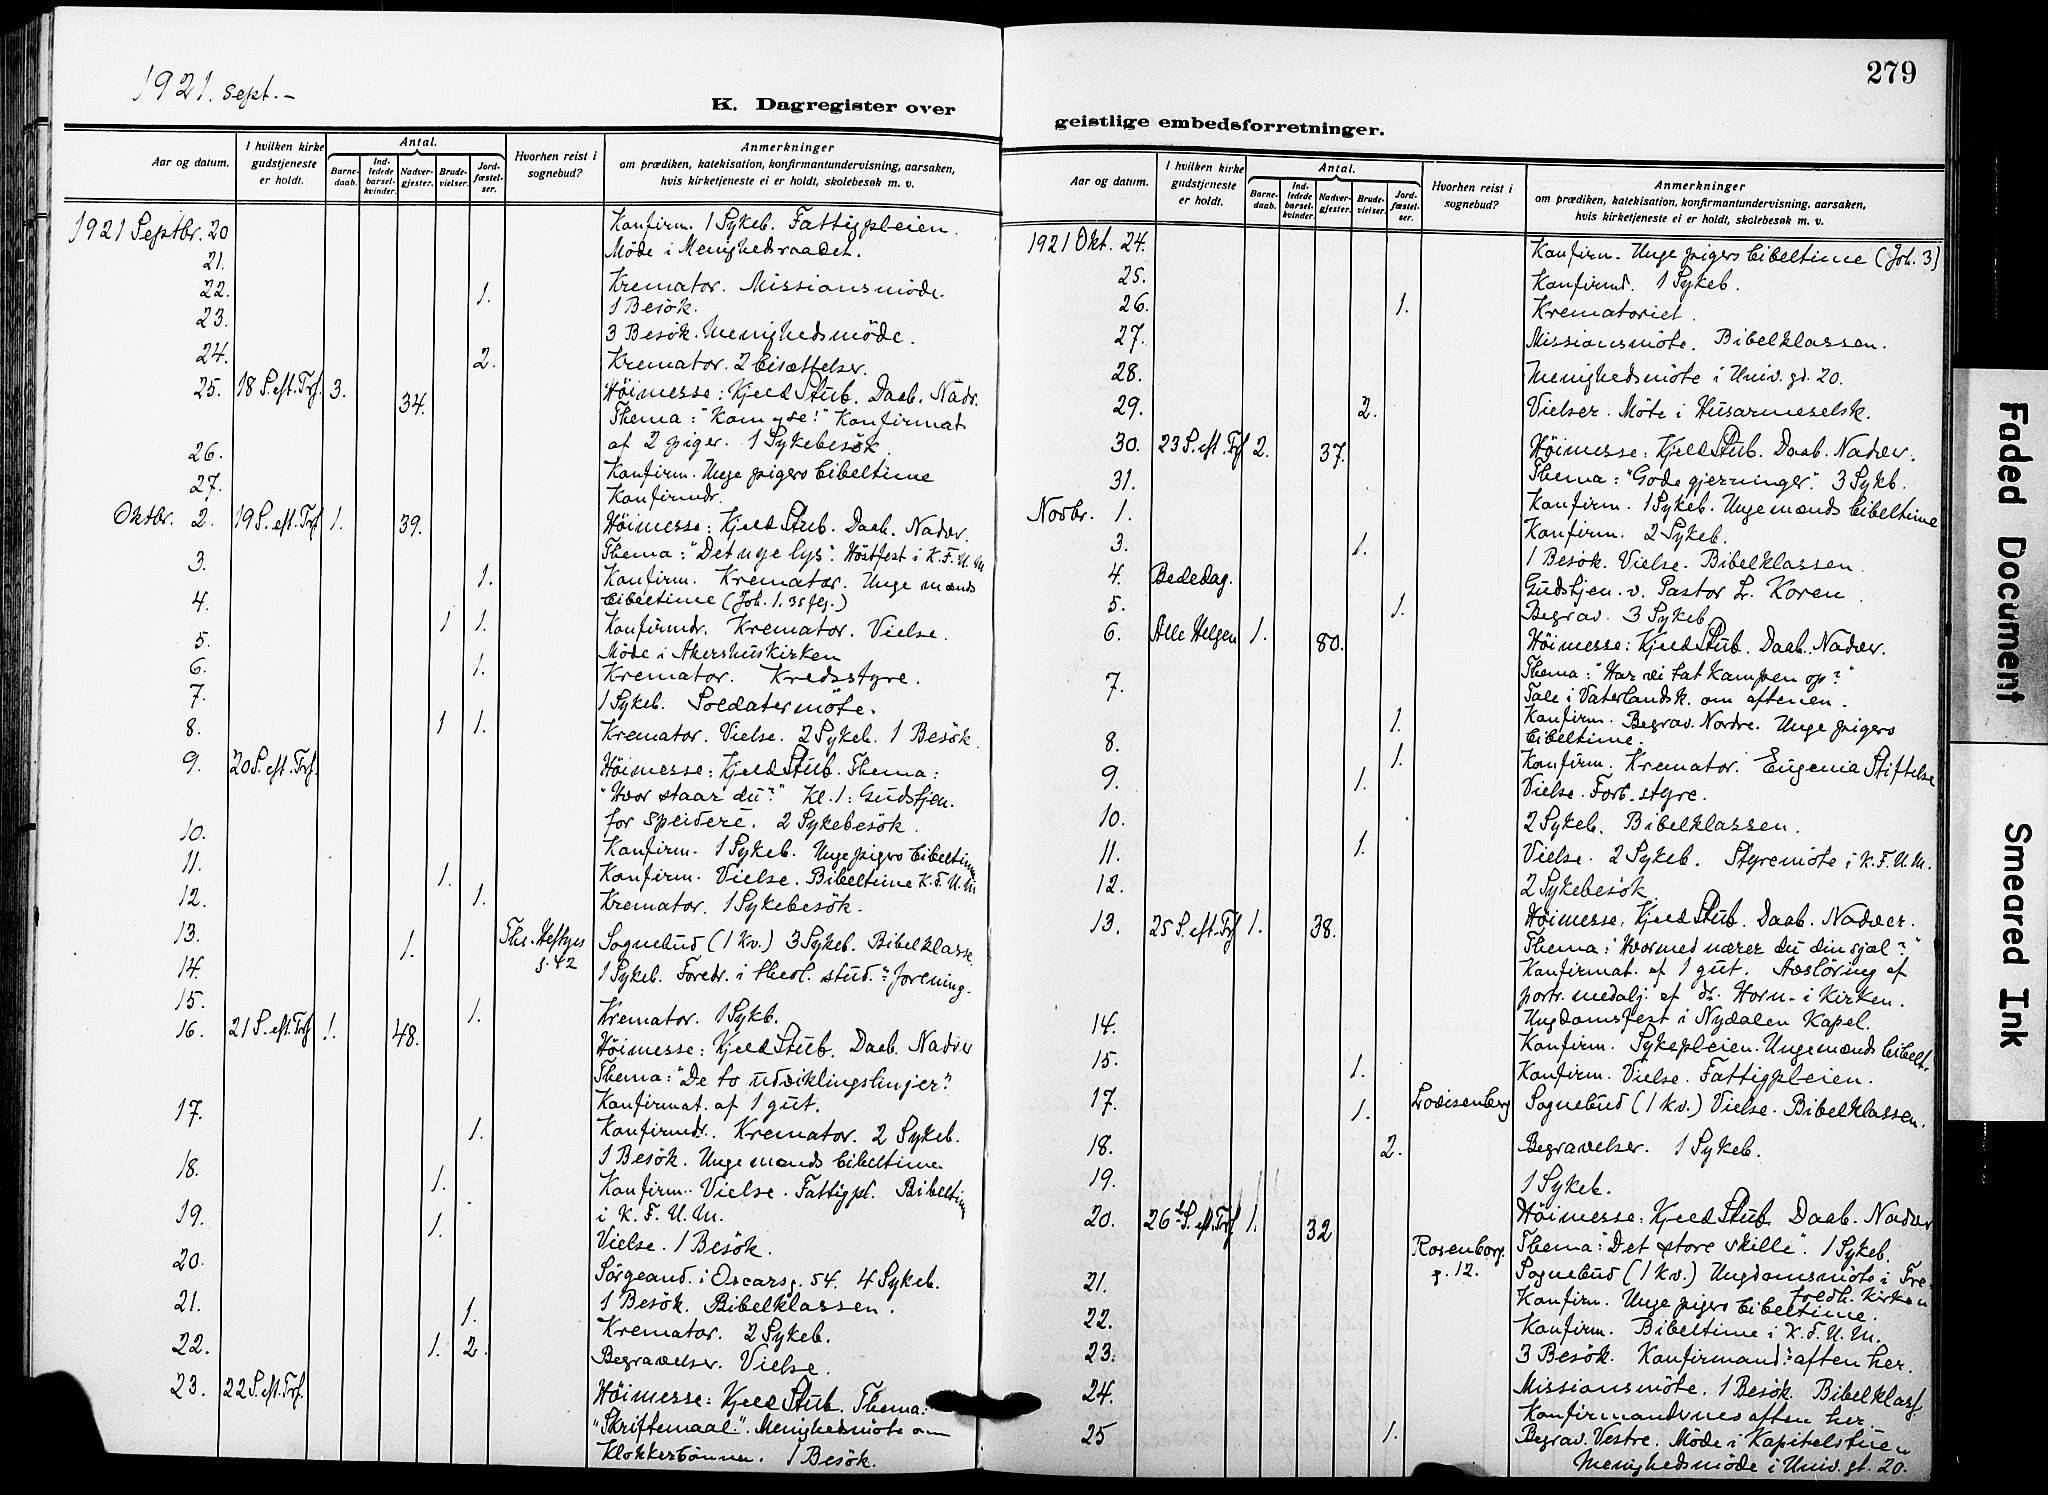 1921. sept. –
K. Dagregister over
Aar og datum.
I hvilken kirke gudstjeneste er holdt.
Antal.
Barne-daab.
Ind-ledede barsel-kvinder.
Nadver-gjester.
Brude-vielser.
Jord-fæstel-ser.
Hvorhen reist i sognebud?
Anmerkninger
om prædiken, katekisation, konfirmantundervisning, aarsaken,
hvis kirketjeneste ei er holdt, skolebesøk m. v.
1921 Septbr. 20 Konfirm. 1 Sykeb. Fattigpleien.
21. Möde i Menighedsraadet.
22. 1. Kremator. Missionsmöde.
23. 1 Besök.
3 Besök. Menighedsmöde.
24. 2. Kremator. 2 bisættelser.
25. 18 S. eft. Trf. 3. 34. Höimesse: Kjeld Stub. Daab. Nadv.
Thema: "Kom og se!" Konfirmat.
af 2 piger. 1 Sykebesök
26. Konfirm. Unge pigers bibeltime
27. Konfirmdr.
Oktbr. 2. 19 S. eft. Trf 1. 39. Höimesse: Kjeld Stub. Daab. Nadver.
Thema: "Det nye lys". Höstfest i K.F.U.M
3. 1. Konfirm. Kremator. Unge mænds
bibeltime (Joh. 1. 35 flg.)
4. 1 1. Konfirmdr. Kremator. Vielse.
5. Möde i Akershuskirken
6. 1. Kremator. Kredsstyre.
7. 1 Sykeb. Soldatermöte.
8. 1 1. Kremator. Vielse. 2 Sykeb. 1 Besök.
9. 20 S. eft. Trf. Höimesse: Kjeld Stub. Thema:
"Hvor staar du?" Kl. 1: Gudstjen.
for speidere. 2 Sykebesök.
10. Konfirm. 1 Sykeb. Unge pigers bibeltime
11. 1. Konfirm. Vielse. Bibeltime K.F.U.M
12. 1. Kremator. 1 Sykebesök.
13. 1. Ths. Heftyes g. 42 Sognebud (1 kv.) 3 Sykeb. Bibelklasse.
14. 1 Sykeb. Foredr. i theol. stud. forening.
15. 1. Kremator. 1 Sykb.
16. 21 S. eft. Trf 1. 48. Höimesse: Kjeld Stub. Daab. Nadver
Thema: "De to udviklingslinjer".
Konfirmat. af 1 gut.
17. 1. Konfirmdr. Kremator. 2 Sykeb.
1 Besök. Unge mænds bibeltime
18. 1. Konfirm. Vielse. Fattigpl. Bibeltime
i K.F.U.M.
19. 1. Vielse. 1 Besök.
20. Sörgeand. i Oscarsg. 54. 4 Sykeb.
1 Besök. Bibelklassen.
21. 1. Kremator. 2 Sykeb.
22. 1. 2. Begravelser. Vielse.
23. 22 S. eft. Trf. Höimesse: Kjeld Stub. Thema:
"Skriftemaal". Menighedsmöte om
klokkerbönnen. 1 Besök.
279
geistlige embedsforretninger.
Aar og datum.
I hvilken kirke gudstjeneste er holdt.
Antal.
Barne-daab.
Ind-ledede barsel-kvinder.
Nadver-gjester.
Brude-vielser.
Jord-fæstel-ser.
Hvorhen reist i sognebud?
Anmerkninger
om prædiken, katekisation, konfirmantundervisning, aarsaken,
hvis kirketjeneste ei er holdt, skolebesøk m. v.
1921 Okt. 24. Konfirm. Unge pigers bibeltime (Joh. 3)
25. Konfirmd. 1 Sykeb.
26. 1. Krematoriet.
27. Missionsmöte. Bibelklassen.
28. Menighedsmöte i Univ. gd. 20.
29. 2. Vielser. Möte i Husarmeselsk.
30. 23 S. eft. Trf 2. 37. Höimesse: Kjeld Stub. Daab. Nadver.
Thema: "Gode gjerninger". 3 Sykb.
31. Konfirm. 1 Sykeb. Unge mænds bibeltime
Novbr. 1. Konfirm. 2 Sykeb.
3. 1. 1 Besök. Vielse. Bibelklassen.
4. Bededag. Gudstjen. v. Pastor L. Koren.
5. 1. Begrav. 3 Sykeb.
6. Alle Helgen 1. 80. Höimesse: Kjeld Stub. Daab. Nadver.
Thema: "Har vi tat kampen op?"
Tale i Vaterlandsk. om aftenen.
7. 1. Konfirm. Begrav. Nordre. Unge pigers
bibeltime.
8. 1. Konfirm. Kremator. Eugenia Stiftelse
9. 1. Vielse. Forb. styre.
10. 2 Sykeb. Bibelklassen.
11. 1. Vielse. 2 Sykeb. Styremöte i K.F.U.M.
12. 2 Sykebesök.
13. 25 S. eft. Trf 1. 38. Höimesse. Kjeld Stub. Daab. Nadver.
Thema: "Hvormed nærer du din sjæl?"
Konfirmat. af 1 gut. Avslöring af
portr. medalj. af dr. Horn i kirken.
Ungdomsfest i Nydalen Kapel.
14. Konfirm. Sykepleien. Unge mænds bibelt.
15. 1. Konfirm. Vielse. Fattigpleien.
17. 1. Lovisenberg Sognebud (1 kv.) Vielse. Bibelklassen.
18. 2. Begravelser. 1 Sykeb.
19. 1 Sykeb.
20. 26 S. eft. Trf 1. 32 Höimesse: Kjeld Stub. Daab. Nadver
Thema: "Det store skille". 1 Sykeb.
Rosenborg g. 12. Sognebud (1 kv.) Ungdomsmöte i Tre-
foldh. kirken
21. Konfirm. Unge pigers bibeltime.
22. Konfirm. Bibeltime i K.F.U.M.
23. 3 Besök. Konfirmand. aften her.
24. Missionsmöte. 1 Besök. Bibelklas.
Konfirmandernes aften her.
25 1. Begrav. Vestre. Möde i Kapitelstuen
Menighedsmöde i Univ. gt. 20.
Faded Document
Smeared Ink